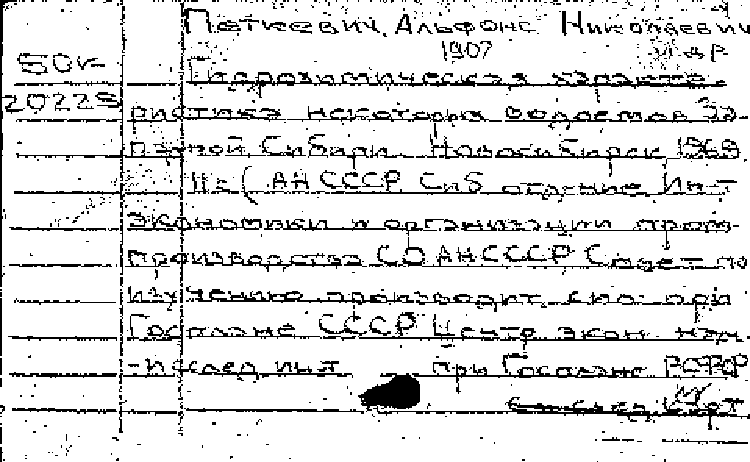 Петкевич, Альфонс Николаевич
1907
50к Гидрохимическая характе-
20228 ристика некоторых водоемов За-
падной Сибири. Новосибирск 1969
(АН СССР Сиб отдние Ин-т
экономики и организации пром
производства СО АН СССР Совет по
изучению производит. сил при
Госплане СССР Центр экон науч
-исслед ин-т при Госплане РСФСР